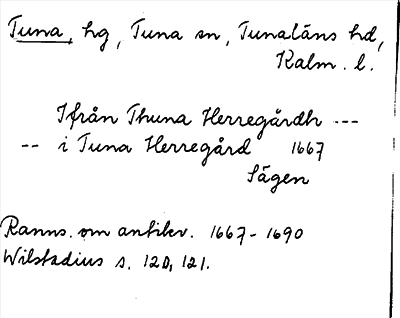 Tuna, hg, Tuna sn, Tunaläns hd,
Kalm. l.
Ifrån Thuna Herregårdh ---
-- i Tuna Herregård 1667
Sägen
Ranns. om antikv. 1667-1690
Wilstadius s. 120, 121.